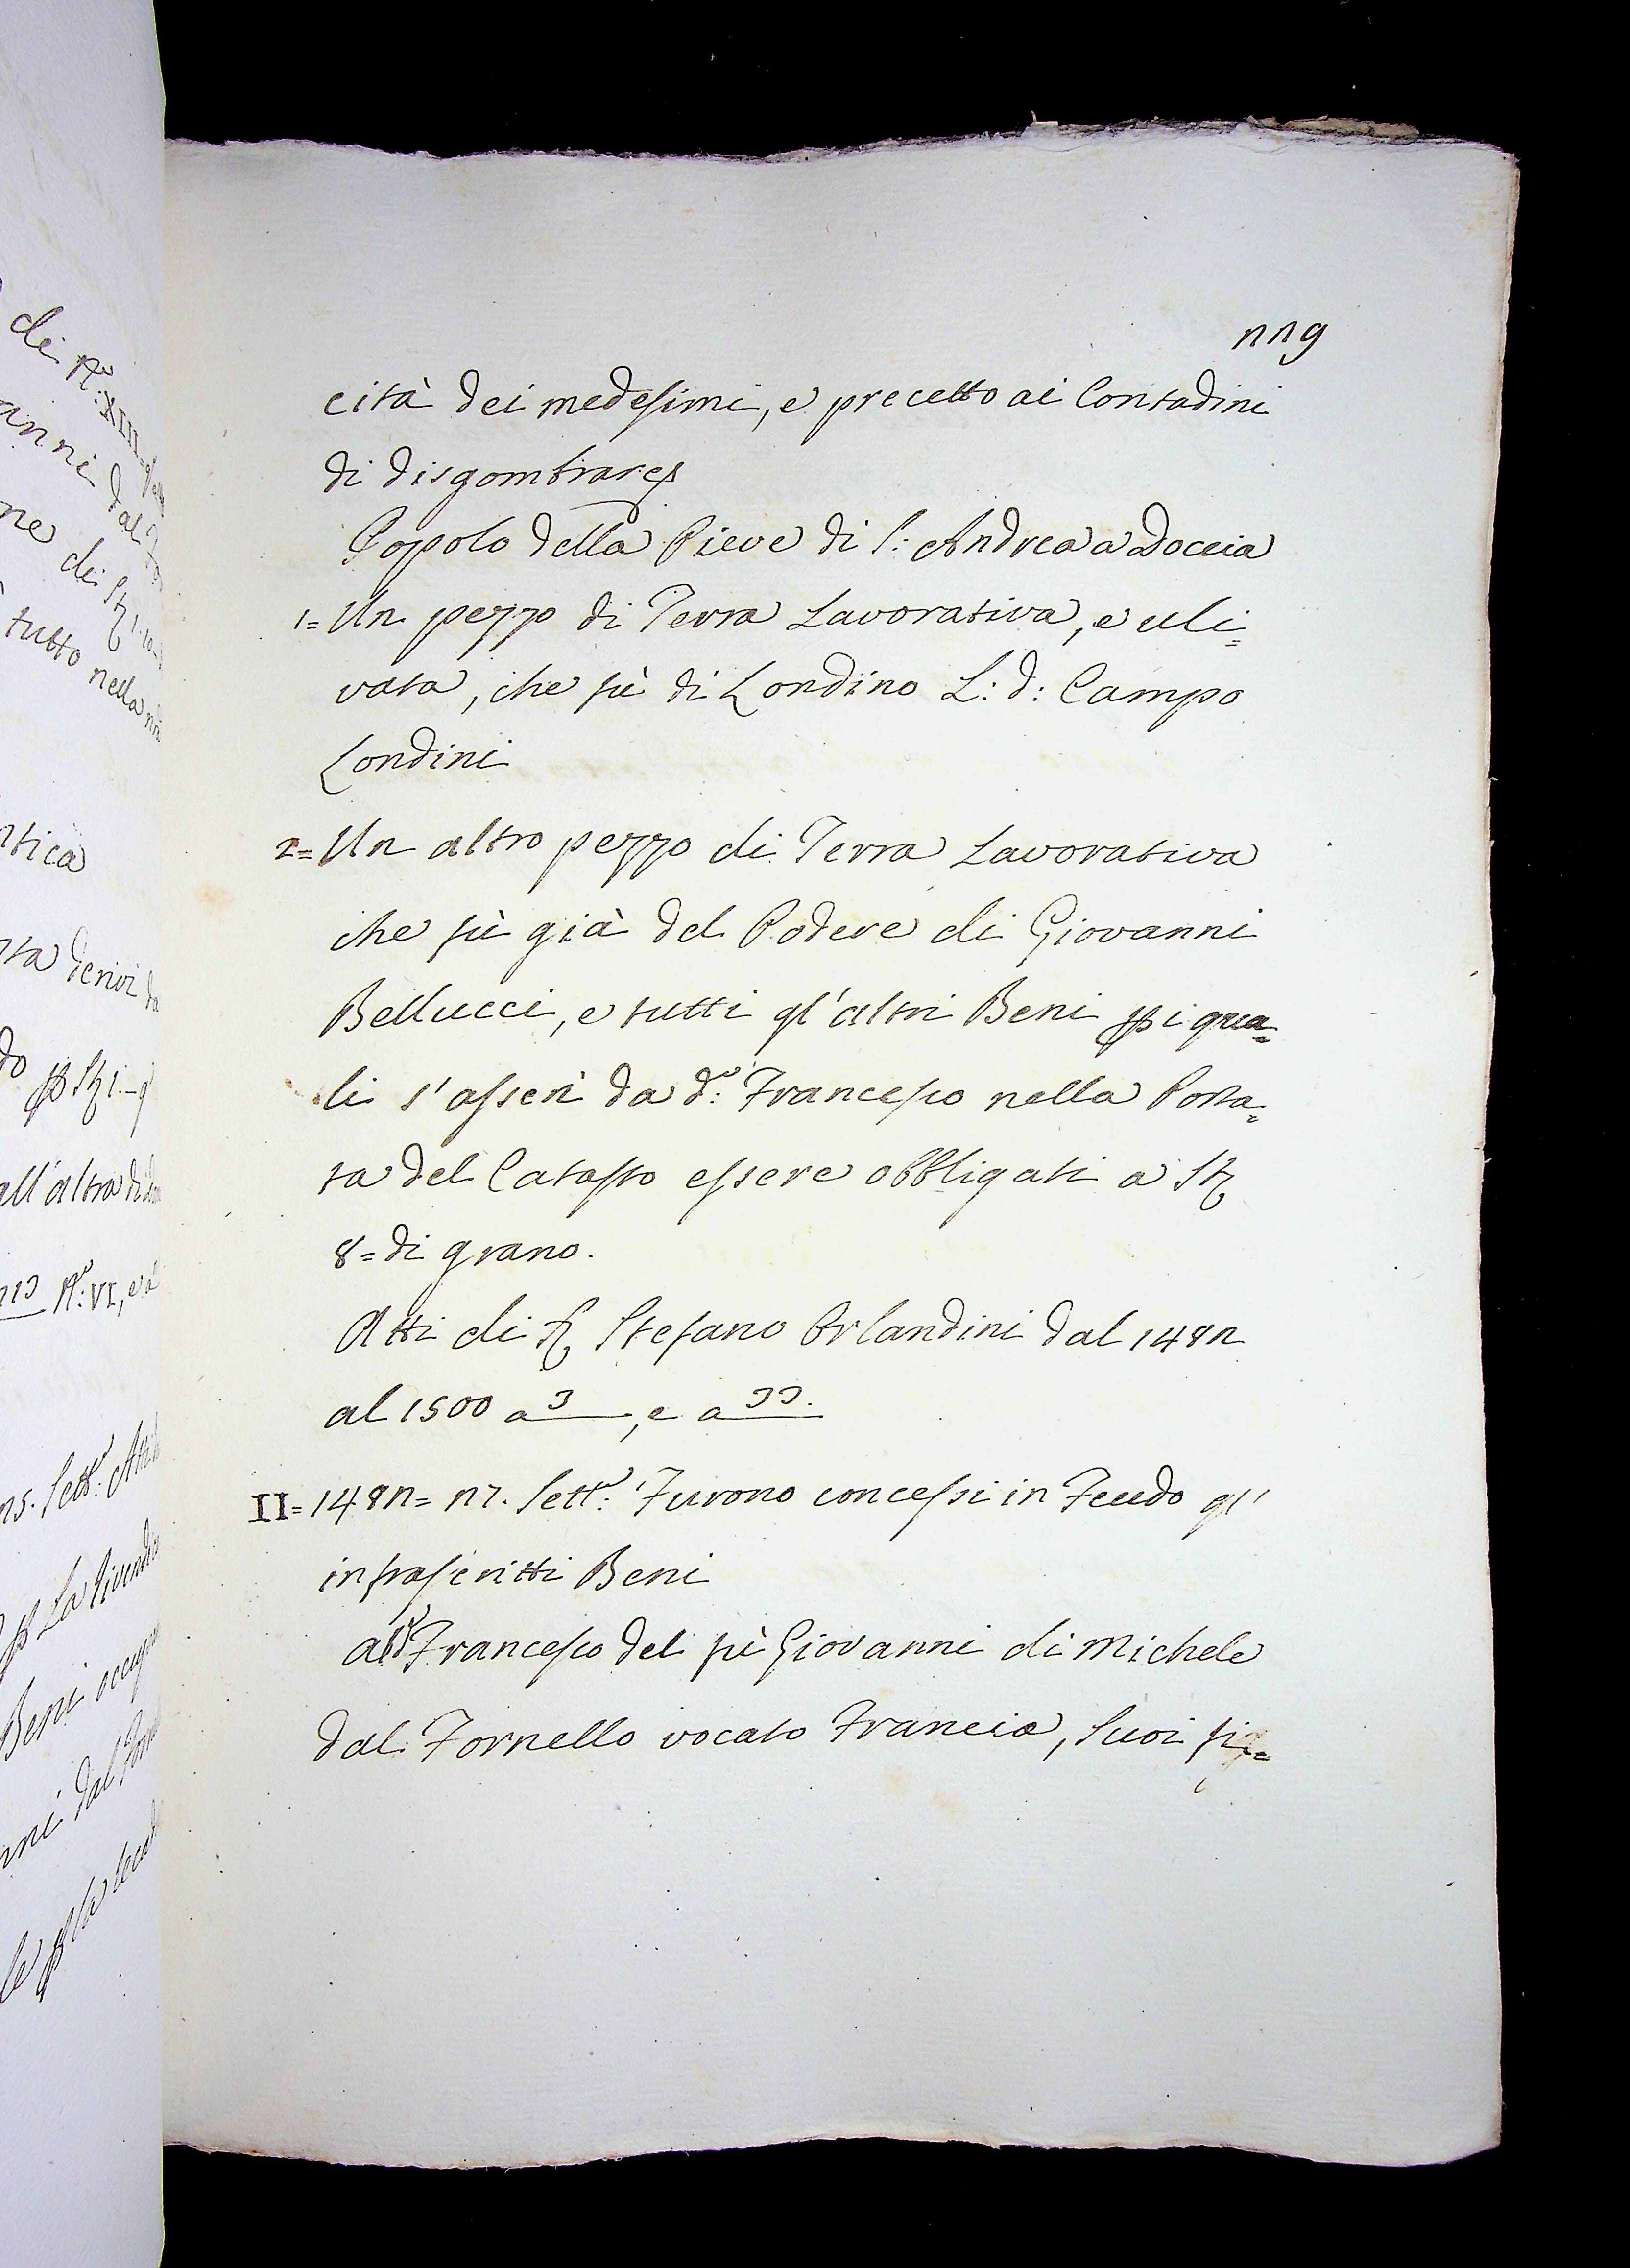 di N.º XIII
anni dal
ne di St
tutto nella
ntica
do p St 1.
all'altra di
N.º VI, e a
ns. Sett.e
p La
Beni
nni dal
le p la
229
cità dei medesimi, e precetto ai Contadini
di disgombrare
Popolo della Pieve di S: Andrea a Doccia
1= Un pezzo di Terra Lavorativa, e uli=
vata, che fù di Londino L: d: Campo
Londini
2= Un altro pezzo di Terra Lavorativa
che fù già del Podere di Giovanni
Bellucci, e tutti gl'altri Beni p i qua=
li s'asserì da d.º Francesco nella Porta=
ta del Catasto essere obbligati a St
8= di grano.
Atti di S Stefano Orlandini dal 1482
al 1500 a 3, e a 33.
II= 1482= 27. Sett.e Furono concessi in Feudo gl'
infrascritti Beni
a d.º Francesco del fù Giovanni di Michele
dal Fornello vocato Francia, Suoi fig=